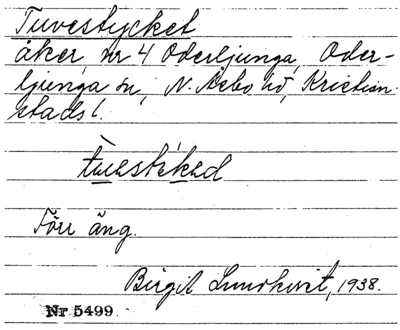 Tuvestycket
åker, nr 4 Oderljunga, Oder-
ljunga sn, N. Åsbo hd, Kristian-
stads l.
Förr äng.
Birgit Lundkvist, 1938.
Nr 5499